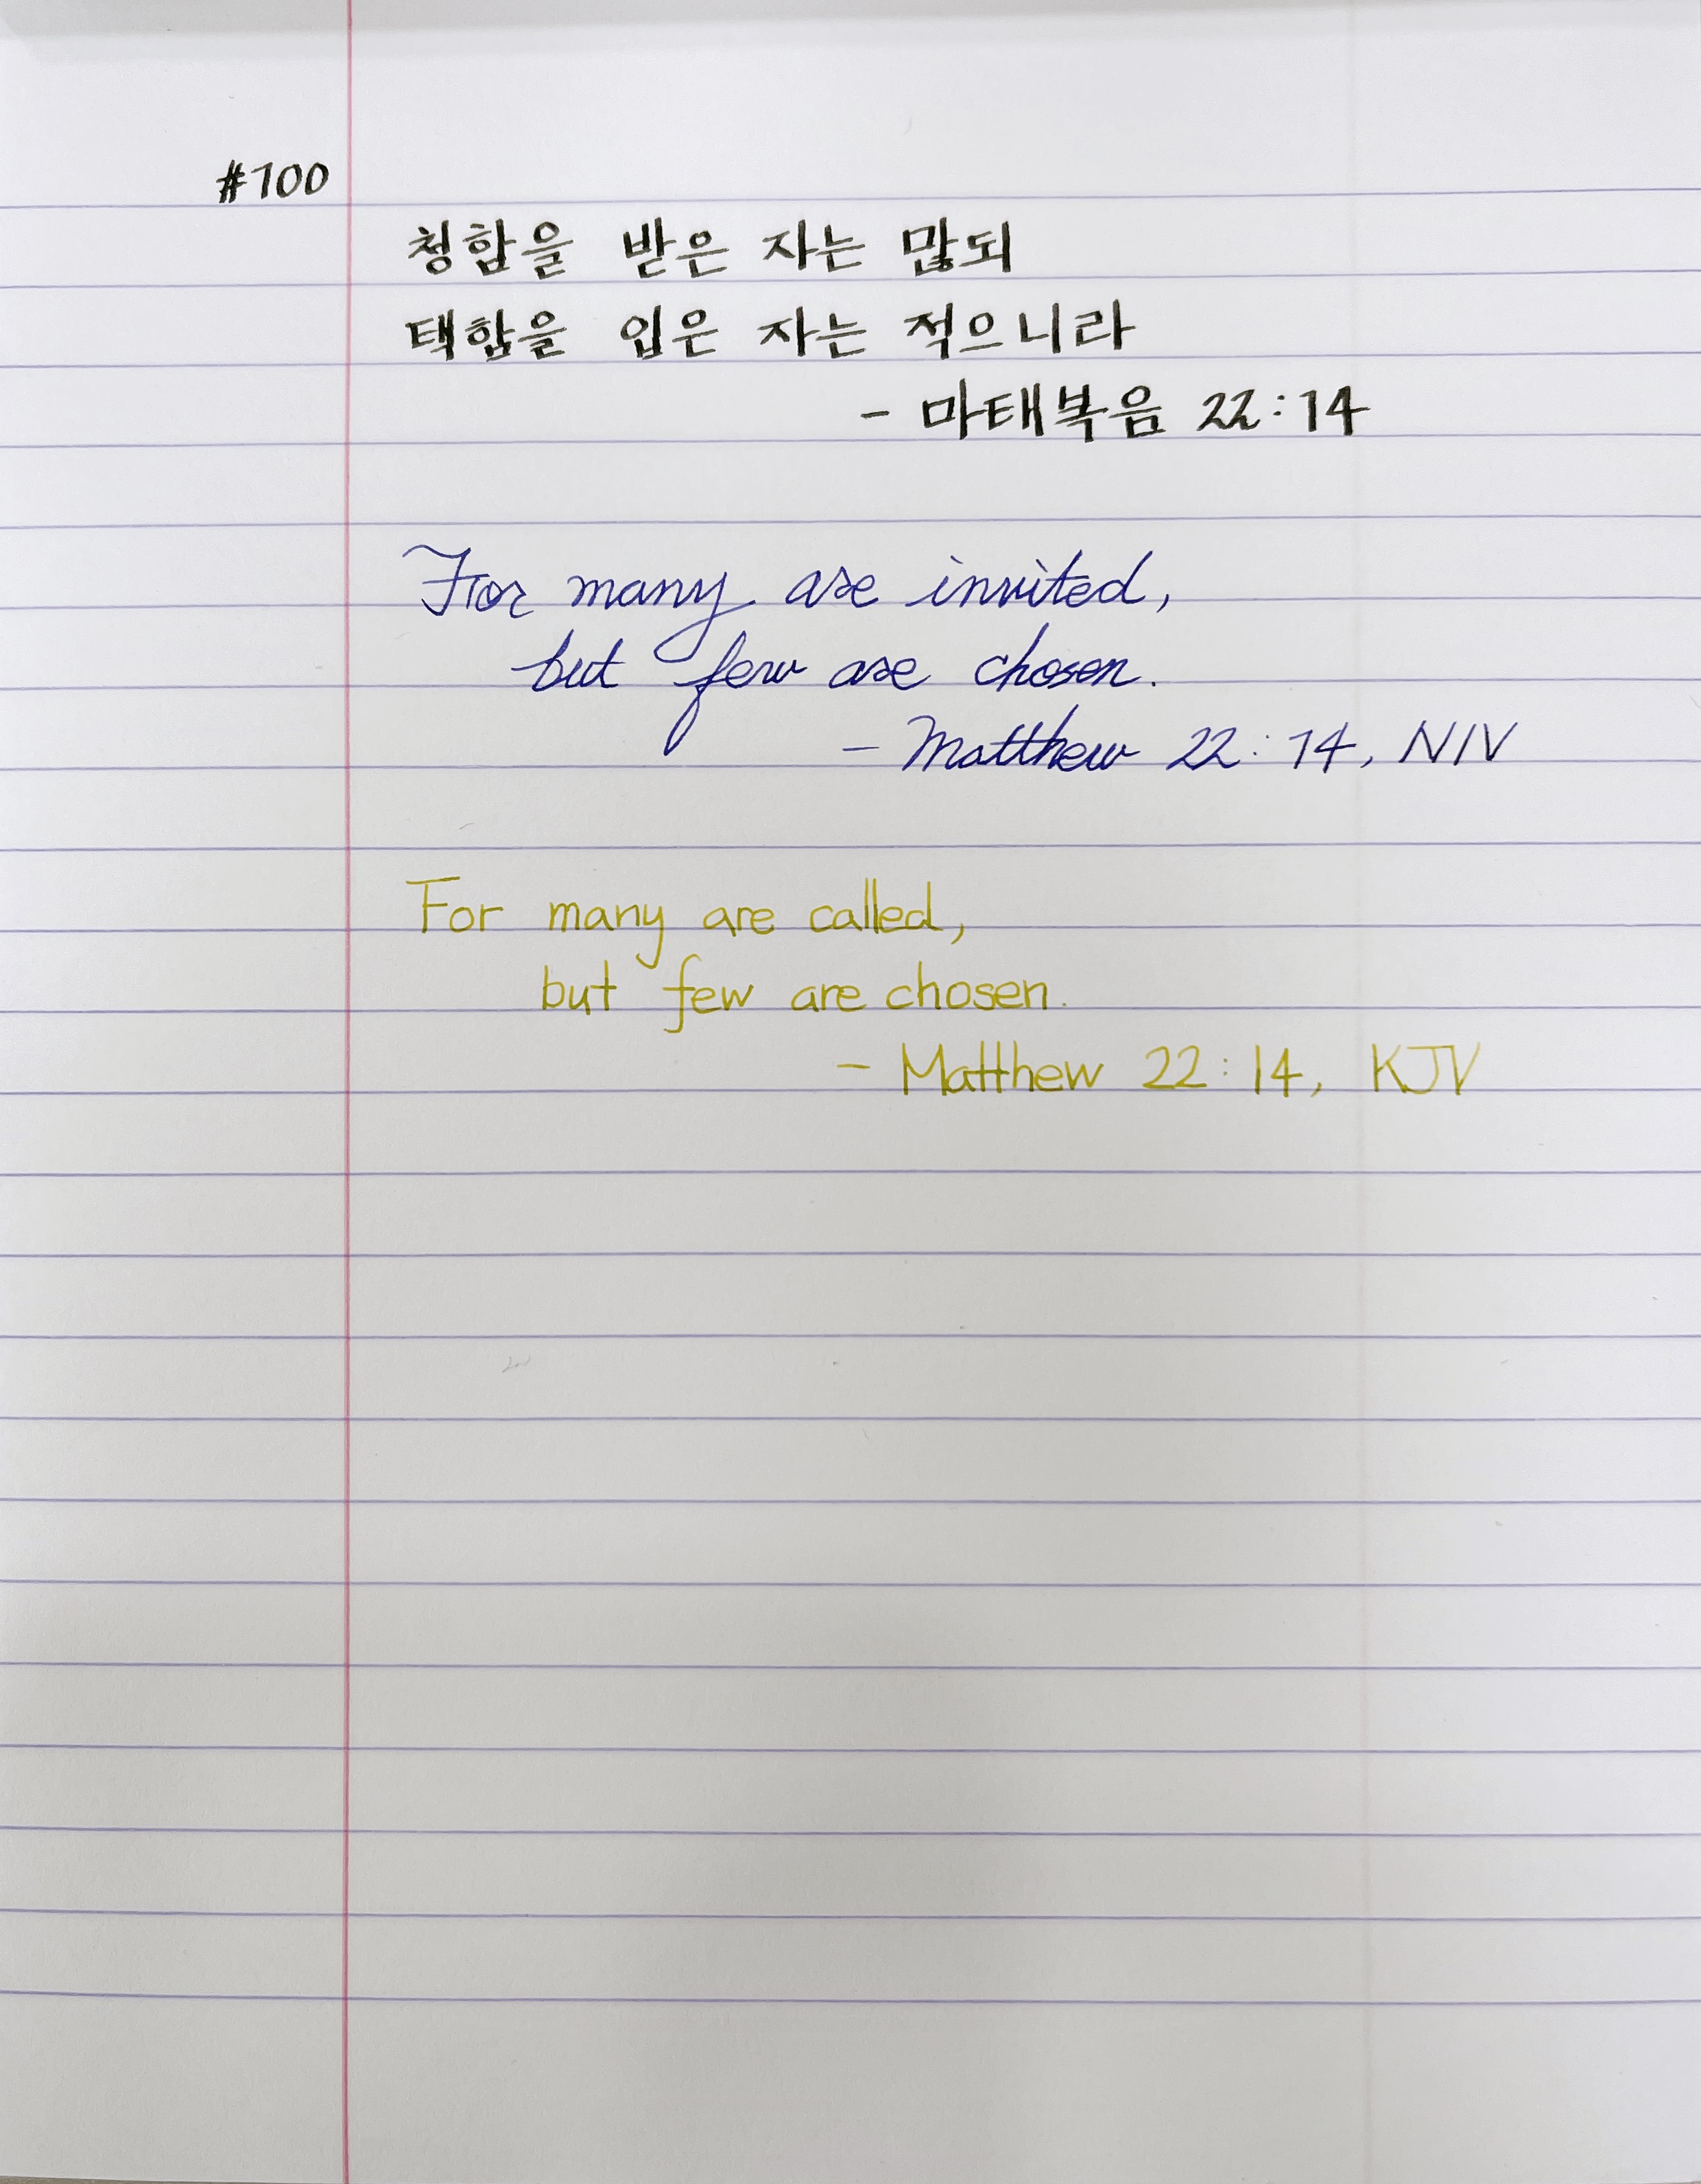 #100
청함을 받은 자는 많되
택함을 입은 자는 적으니라
- 마태복음 22:14
For many are invited,
but few are chosen.
- Matthew 22:14, NIV
For many are called,
but few are chosen.
- Matthew 22:14, KJV